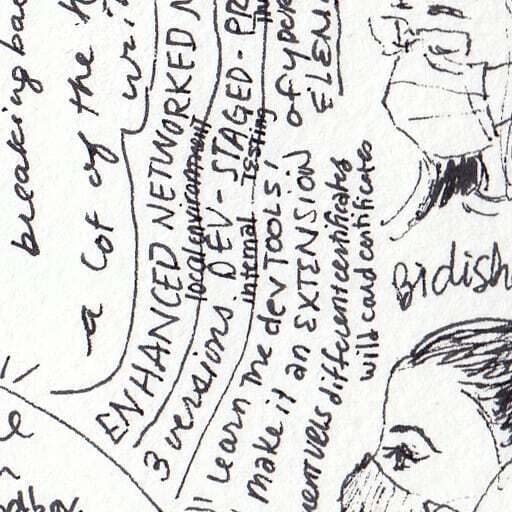 breaking bac
a lot of the h
wri
ENHANCED NETWORKED N
local environment
3 versions. DEV - STAGED - PR
internal testing
Learn the dev TOOLS! of your
make it an EXTENSION ELEM
different certificates
wild card certificates
Bidish